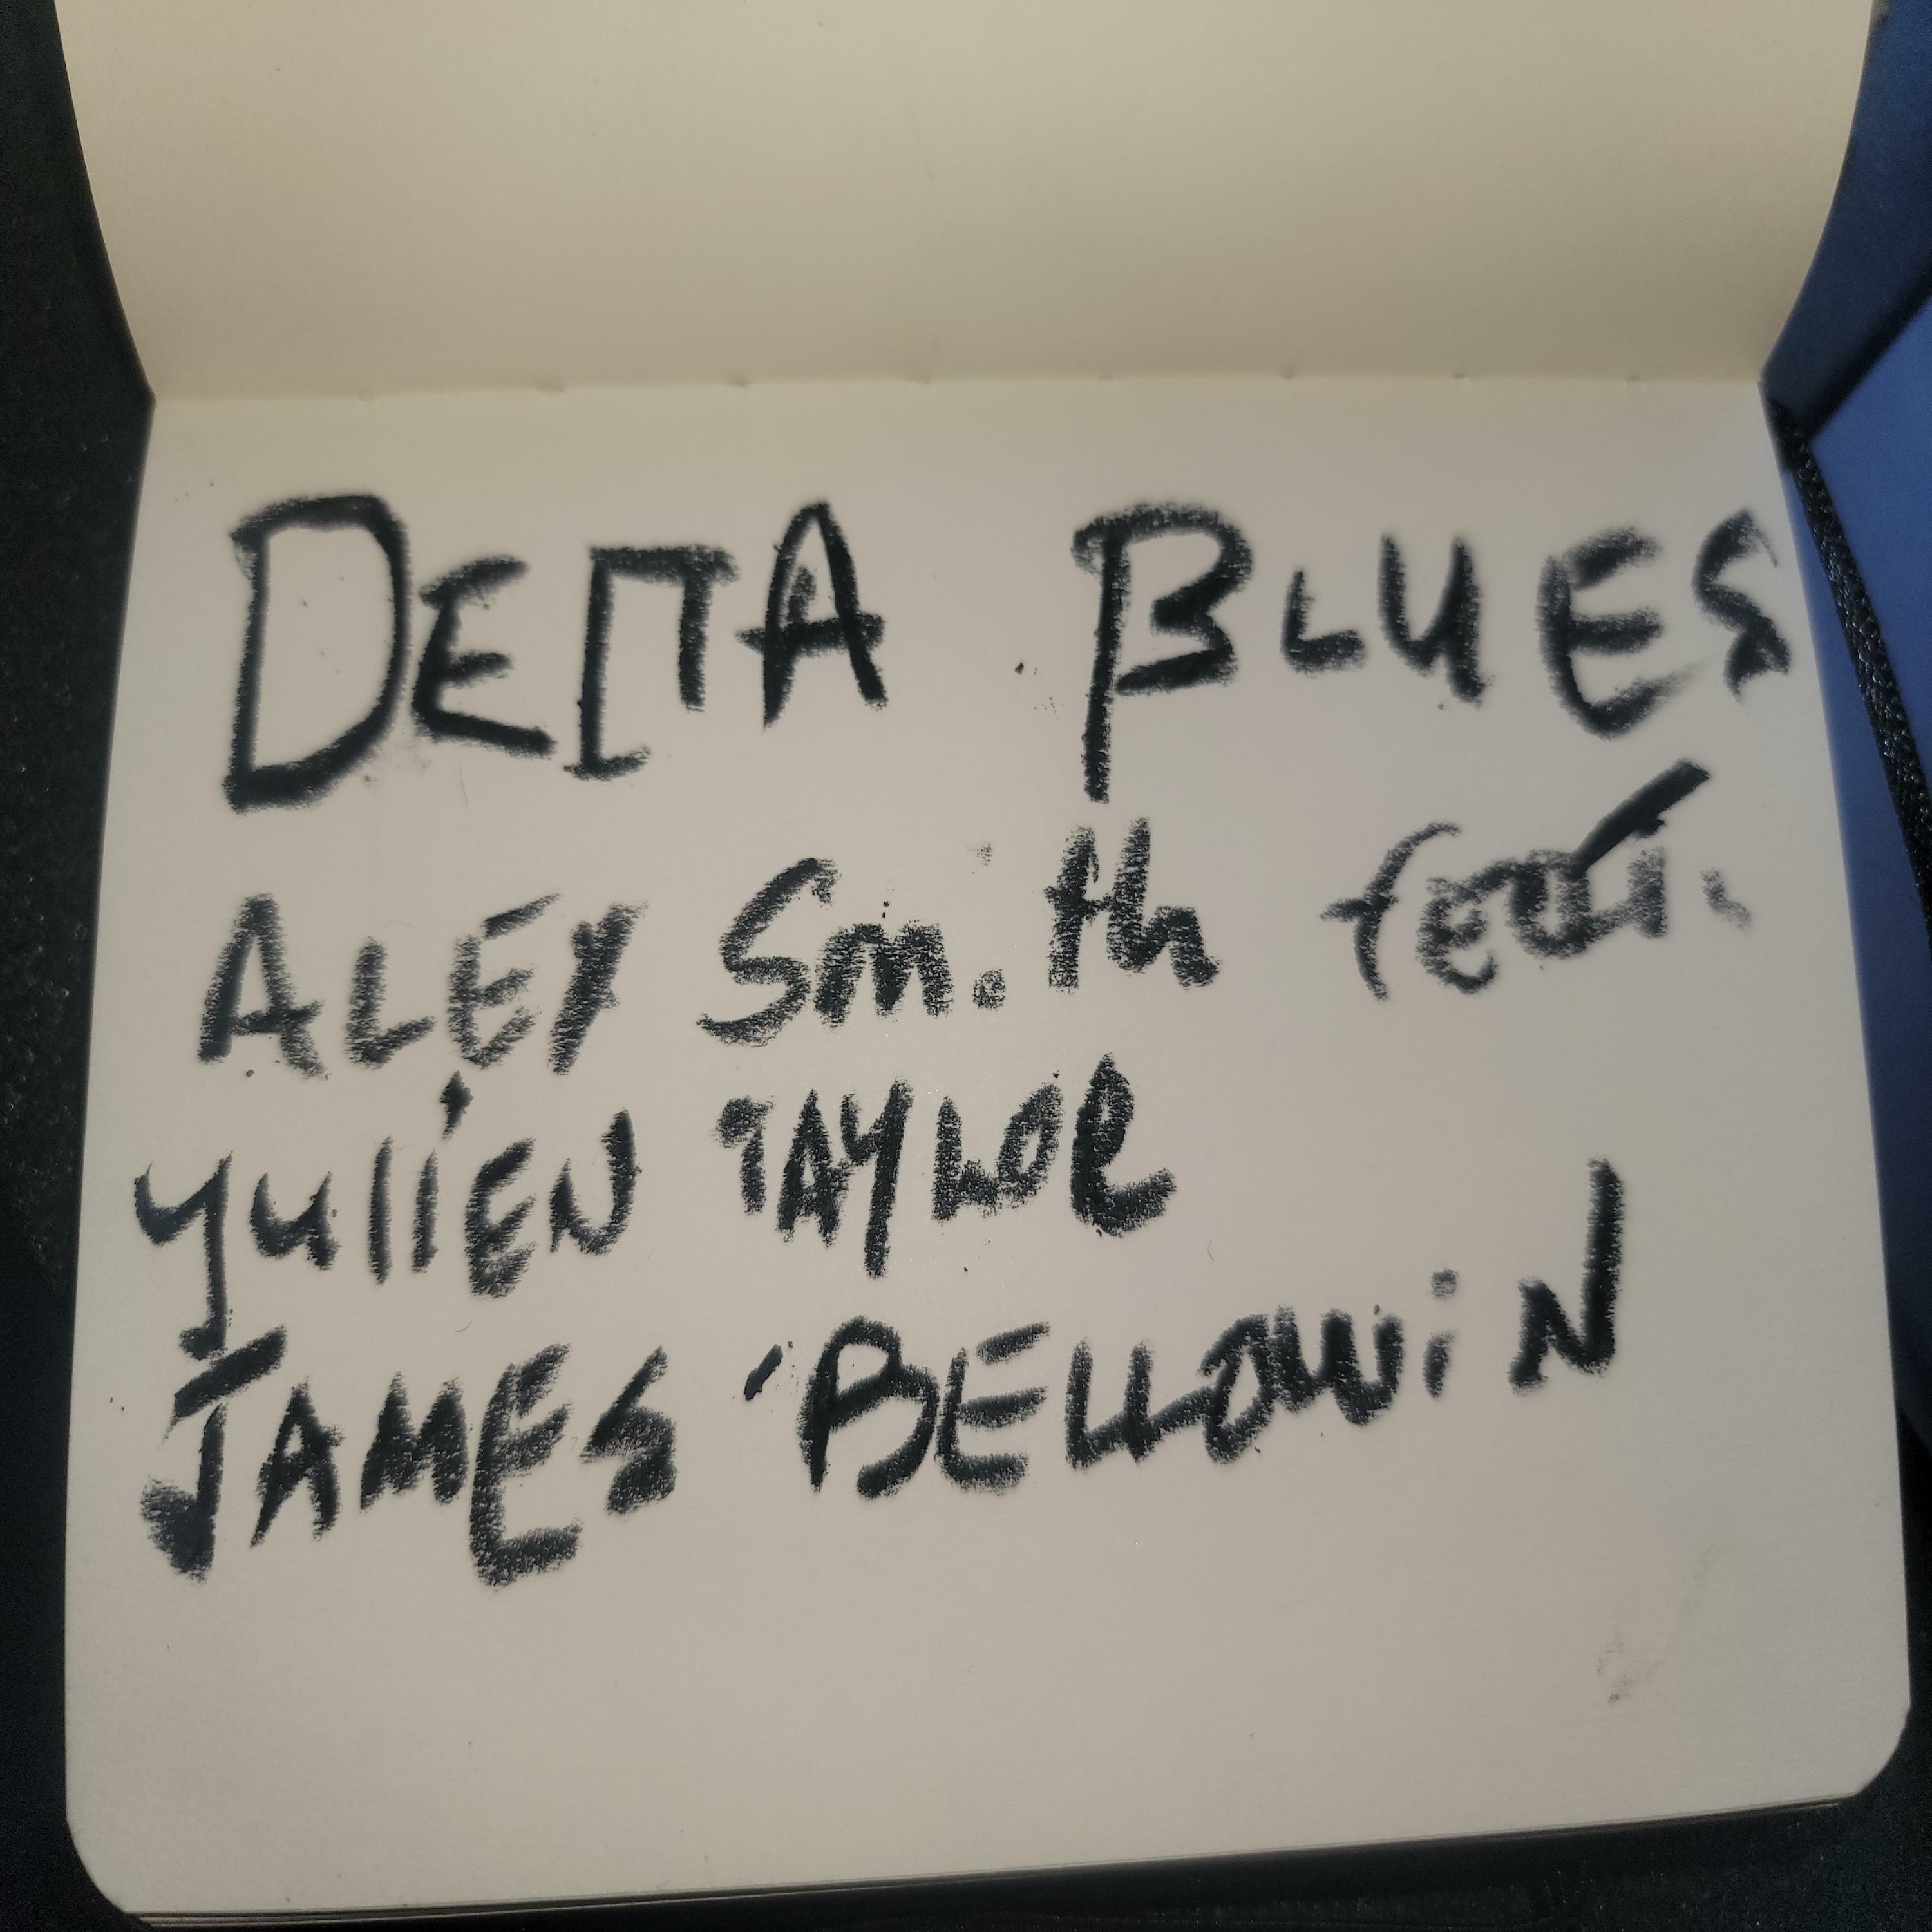 DELTA BLUES
ALEX Smith feat.
YulliEN TAYLOR
JAMES BELLOWiN